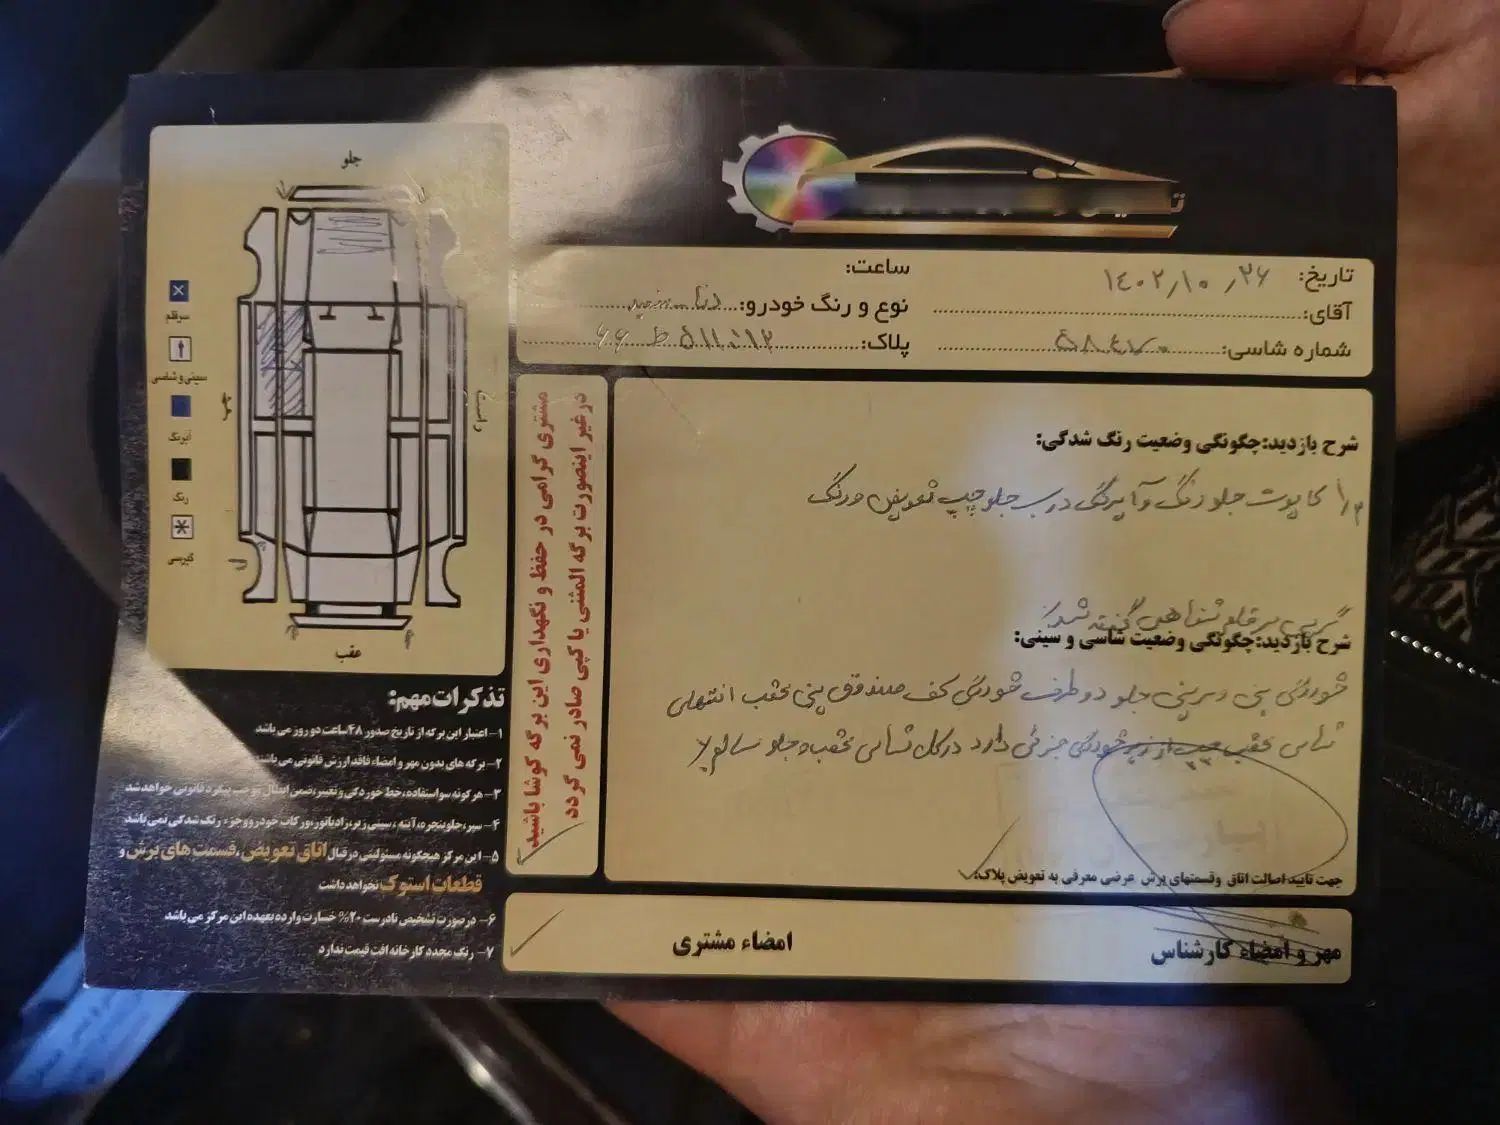 تاریخ: ۱۴۰۲/۱۰/۲۶
ساعت:
آقای:
نوع و رنگ خودرو: دنا سفید
شماره شاسی: ۵۸۴۷۰
پلاک: ۱۲ ۵۱۱ ط ۶۶
شرح بازدید: چگونگی وضعیت رنگ شدگی:
کاپوت جلو رنگ و آبرنگ درب جلو چپ تعویض و رنگ
گریس سرقلم شناهی گفته شد
شرح بازدید: چگونگی وضعیت شاسی و سینی:
خوردگی سینی جلو دو طرف خوردگی کف صندوق سینی عقب انتهای
شاسی عقب چپ از زیر خوردگی جزئی دارد در کل شاسی عقب و جلو سالم
جهت تایید اصالت اتاق وقسمتهای برش عرضی معرفی به تعویض پلاک:
مهر و امضاء کارشناس
امضاء مشتری
مشتری گرامی در حفظ و نگهداری این برگه کوشا باشید
در غیر اینصورت برگه المثنی یا کپی صادر نمی گردد
جلو
راست
چپ
عقب
سرقلم
سینی و شاسی
آبرنگ
رنگ
گریسی
تذکرات مهم:
۱- اعتبار این برگه از تاریخ صدور ۴۸ ساعت دو روز می باشد
۲- برگه های بدون مهر و امضاء فاقد ارزش قانونی می باشند
۳- هرگونه سواستفاده، خط خوردگی و تغییر، ضمن ابطال موجب پیگرد قانونی خواهد شد
۴- سپر، جلو پنجره، آینه، سینی زیر رادیاتور، ورکاب خودرو و جزء رنگ شدگی نمی باشد
۵- این مرکز هیچگونه مسئولیتی در قبال اتاق تعویض، قسمت های برش و
قطعات استوک نخواهد داشت
۶- در صورت تشخیص نادرست ۲۰% خسارت وارده بعهده این مرکز می باشد
۷- رنگ مجدد کارخانه افت قیمت ندارد